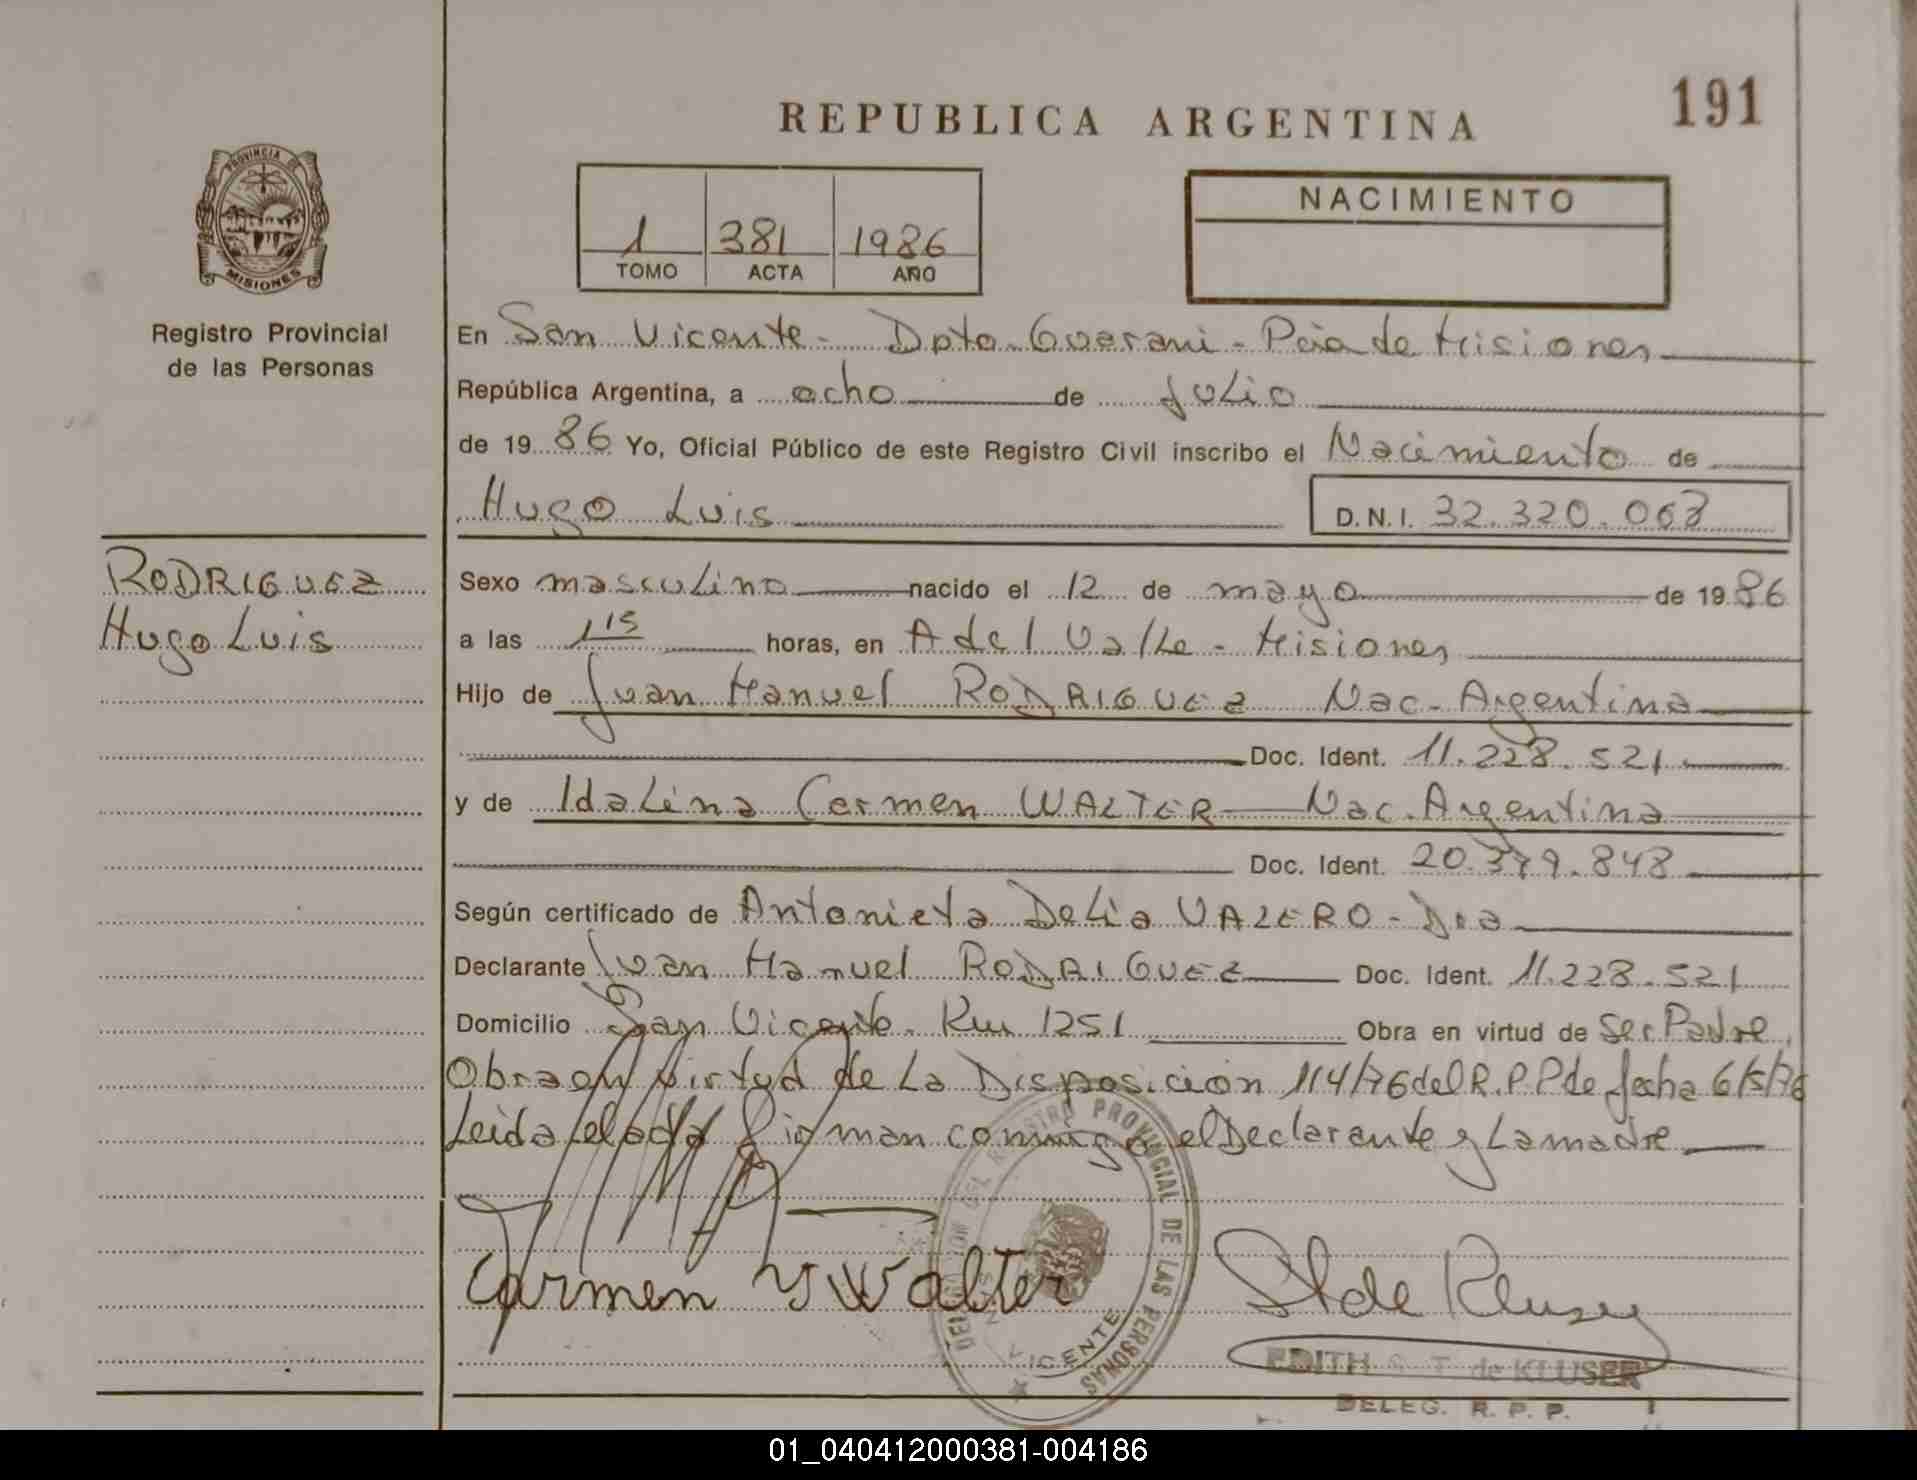 191
REPUBLICA ARGENTINA
PROVINCIA DE
MISIONES
Registro Provincial
de las Personas
1 381 1986
TOMO ACTA AÑO
NACIMIENTO
En San Vicente - Dpto. Guarani - Pcia de Misiones
República Argentina, a ocho de Julio
de 1986 Yo, Oficial Público de este Registro Civil inscribo el Nacimiento de
Hugo Luis D.N.I. 32.320.068
RODRIGUEZ
Hugo Luis
Sexo masculino nacido el 12 de mayo de 1986
a las 1 15 horas, en A del Valle - Misiones
Hijo de Juan Manuel RODRIGUEZ Nac. Argentina
Doc. Ident. 11.228.521
y de Idalina Carmen WALTER Nac. Argentina
Doc. Ident. 20.379.848
Según certificado de Antonieta Delia VALERO - Dra
Declarante Juan Manuel RODRIGUEZ Doc. Ident. 11.228.521
Domicilio San Vicente. Km 1251 Obra en virtud de Ser Padre
Obra en virtud de La Disposición 114/76 del R.P.P de fecha 6/5/76
Leida el acta firman conmigo el Declarante y La madre
REGISTRO PROVINCIAL DE LAS PERSONAS
VICENTE
Carmen Y Walter
St de Kluser
EDITH S. T. de KLUSER
DELEG. R. P. P.
01_040412000381-004186